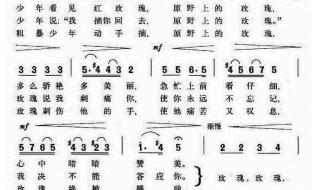 少年看见红玫瑰，原野上的玫瑰，
少年说:“我摘你回去，原野上的玫瑰。”
粗暴少年动手摘，原野上的玫瑰，
mf
3 3 3 3 5·#4 3 2 3 5 2 1 #4 5 6 7 5
多么骄艳多美丽，急忙上前看仔细，
玫瑰说我刺痛你，使你永远不忘记，
玫瑰刺伤他的手，使他痛苦又叹息，
mf
渐慢
心中暗暗赞美。
我决不能答应你。
玫瑰，玫瑰，